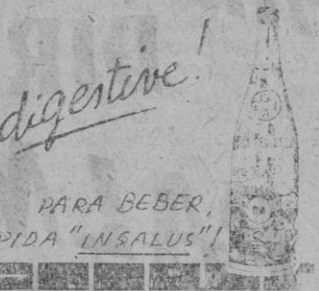 digestive!
PARA BEBER,
PIDA "INSALUS"!